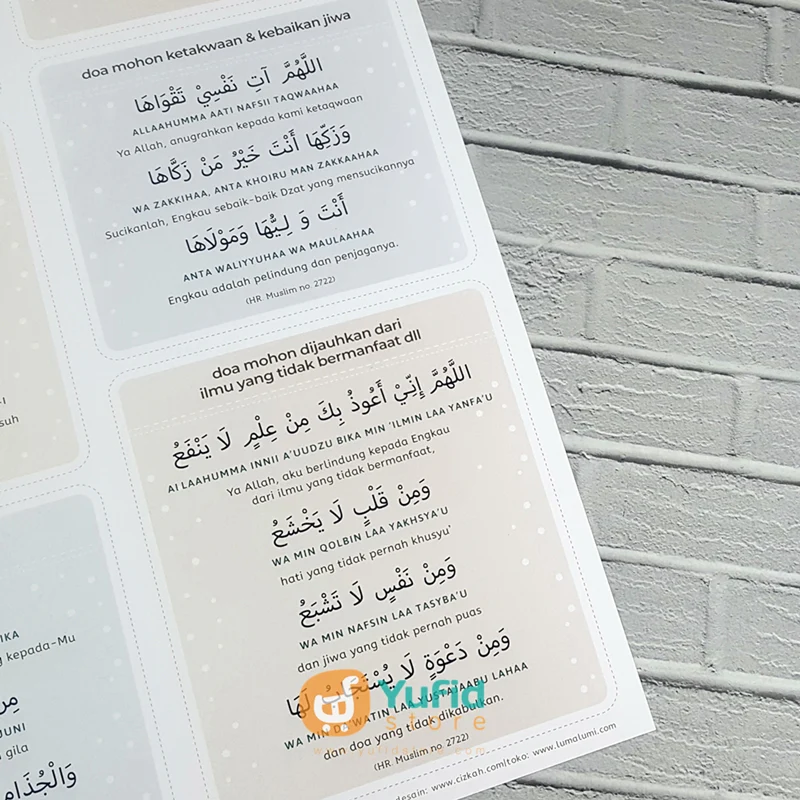 doa mohon ketakwaan & kebaikan jiwa
اللَّهُمَّ آتِ نَفْسِيْ تَقْوَاهَا
ALLAAHUMMA AATI NAFSII TAQWAAHAA
Ya Allah, anugrahkan kepada kami ketaqwaan
وَزَكِّهَا أَنْتَ خَيْرُ مَنْ زَكَّاهَا
WA ZAKKIHAA, ANTA KHOIRU MAN ZAKKAAHAA
Sucikanlah, Engkau sebaik-baik Dzat yang mensucikannya
أَنْتَ وَ لِيُّهَا وَمَوْلَاهَا
ANTA WALIYYUHAA WA MAULAAHAA
Engkau adalah pelindung dan penjaganya.
(HR. Muslim no. 2722)
doa mohon dijauhkan dari
ilmu yang tidak bermanfaat dll
اللَّهُمَّ إِنِّيْ أَعُوذُ بِكَ مِنْ عِلْمٍ لَا يَنْفَعُ
ALLAAHUMMA INNII A'UUDZU BIKA MIN 'ILMIN LAA YANFA'U
Ya Allah, aku berlindung kepada Engkau
dari ilmu yang tidak bermanfaat,
وَمِنْ قَلْبٍ لَا يَخْشَعُ
WA MIN QOLBIN LAA YAKHSYA'U
hati yang tidak pernah khusyu'
وَمِنْ نَفْسٍ لَا تَشْبَعُ
WA MIN NAFSIN LAA TASYBA'U
dan jiwa yang tidak pernah puas
وَمِنْ دَعْوَةٍ لَا يُسْتَجَابُ لَهَا
WA MIN DA'WATIN LAA YUSTAJAABU LAHAA
dan doa yang tidak dikabulkan.
(HR. Muslim no. 2722)
desain: www.cizkah.com|toko: www.lumalumi.com
suh
IKA
kepada-Mu
JUNI
gila
وَالْجُذَامِ
Yufid
store